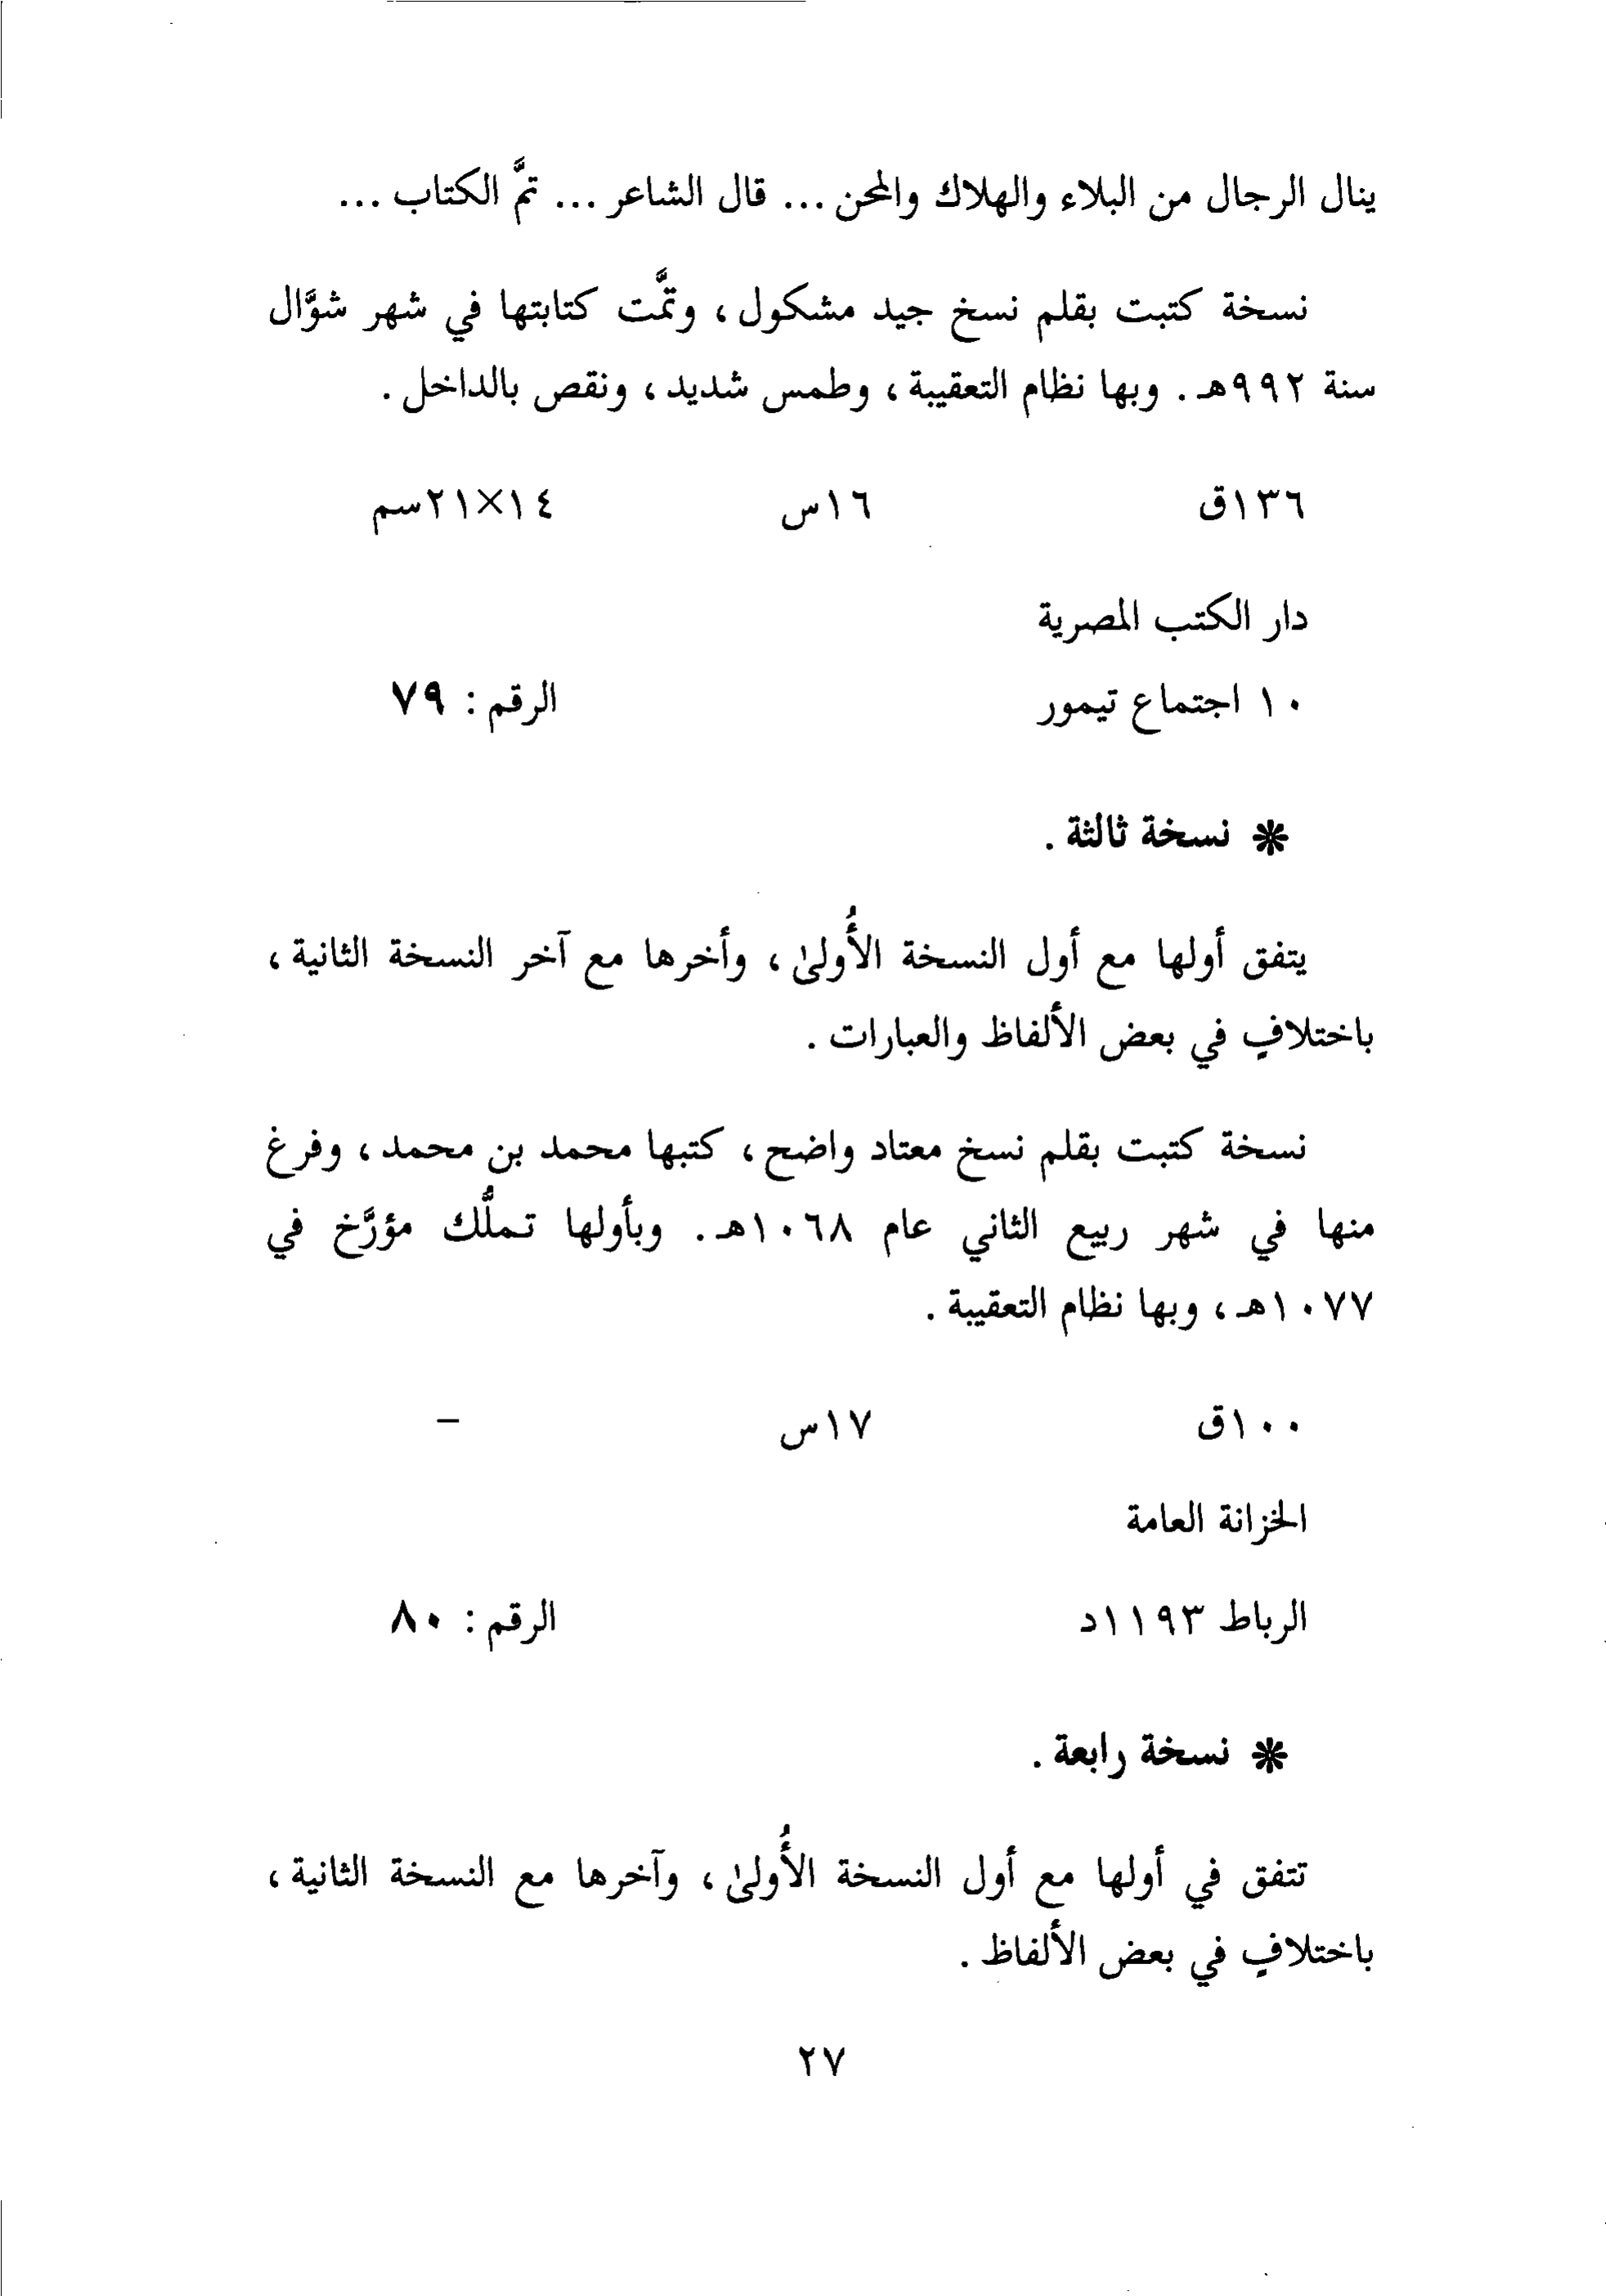 ينال الرجال من البلاء والهلاك والمحن ... قال الشاعر ... تمَّ الكتاب ...
نسخة كتبت بقلم نسخ جيد مشكول ، وتمَّت كتابتها في شهر شوَّال
سنة ٩٩٢هـ . وبها نظام التعقيبة ، وطمس شديد ، ونقص بالداخل .
١٣٦ق ١٦س ١٤×٢١سم
دار الكتب المصرية
١٠ اجتماع تيمور الرقم : ٧٩
* نسخة ثالثة .
يتفق أولها مع أول النسخة الأُولىٰ ، وأخرها مع آخر النسخة الثانية ،
باختلافٍ في بعض الألفاظ والعبارات .
نسخة كتبت بقلم نسخ معتاد واضح ، كتبها محمد بن محمد ، وفرغ
منها في شهر ربيع الثاني عام ١٠٦٨هـ . وبأولها تملُّك مؤرَّخ في
١٠٧٧هـ ، وبها نظام التعقيبة .
١٠٠ق ١٧س –
الخزانة العامة
الرباط ١١٩٣د الرقم : ٨٠
* نسخة رابعة .
تتفق في أولها مع أول النسخة الأُولىٰ ، وآخرها مع النسخة الثانية ،
باختلافٍ في بعض الألفاظ .
٢٧